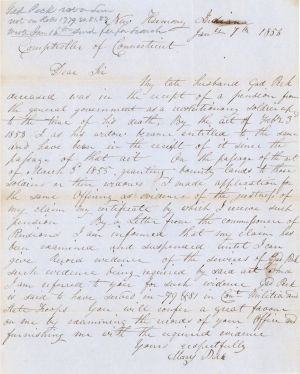 Gad Peck not on Line
not on Rolls 1779 80.81.82
Wrote Jan 16th and fee for search
New Harmony Indiana
Jan 7th 1856
Comptroller of Connecticut
Dear Sir
My late Husband Gad Peck
deceased was in the receipt of a pension from
the general government as a revolutionary soldier up
to the time of his death. By the act of Feb 3d
1853 I as his widow became entitled to the same
and have been in the receipt of it since the
passage of that act. On the passage of the act
of March 3d 1855 granting bounty lands to those
soldiers or their widows I made application for
the same offering as evidence of the justness of
my claim my certificate on which I receive such
pension. By a Letter from the commissioner of
Pensions I am informed that my claim has
been examined and suspended until I can
give Record evidence of the services of Gad Peck
such evidence being required by said act and
I am refered to you for such evidence Gad Peck
is said to have served in 79 & 81 in Con Militia and
State troops. You will confer a great favour
on me by examining the records of your Office and
furnishing me with the required evidence
Yours respectfully
Mary Peck